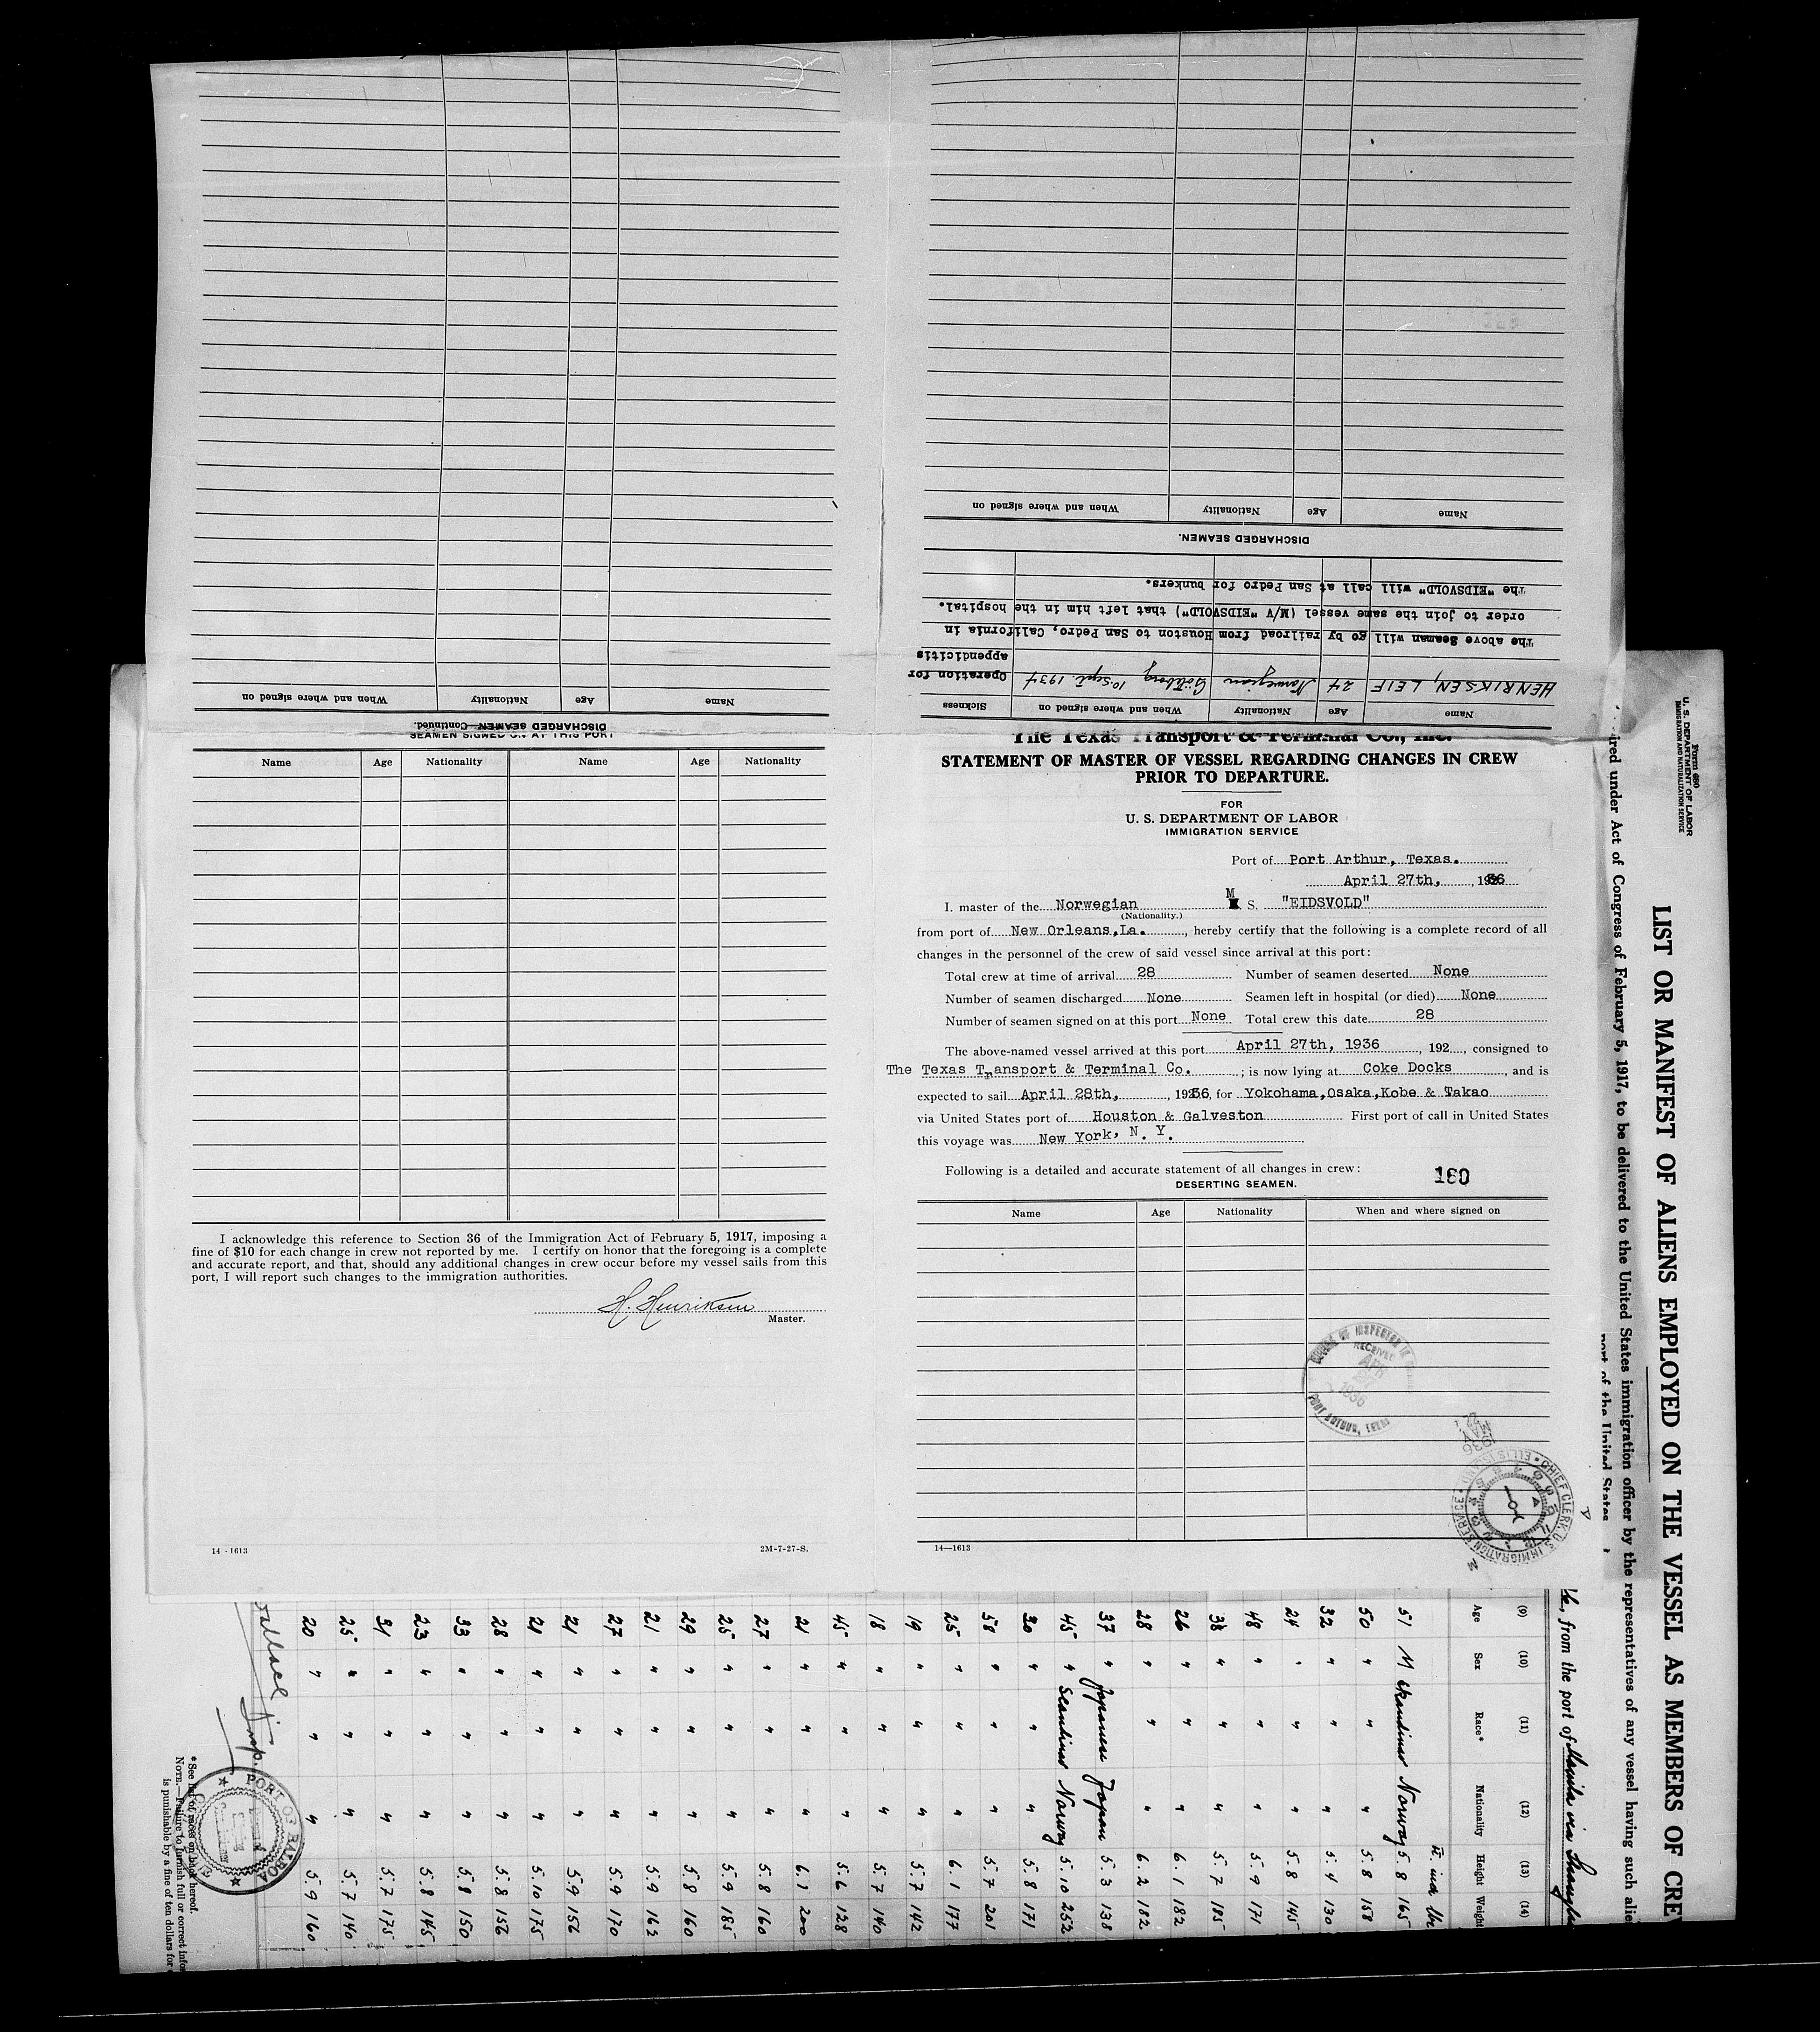 DISCHARGED SEAMEN—Continued.
Name Age Nationality When and where signed on
Name Sickness Age Nationality When and where signed on
HENRIKSEN, LEIF 24 Norwegian Göteborg 10. Sept. 1934 Operation for
appendicitis
The above Seaman will go by railroad from Houston to San Pedro, California in
order to join the same vessel (M/V "EIDSVOLD") that left him in the hospital.
The "EIDSVOLD" will call at San Pedro for bunkers.
DISCHARGED SEAMEN.
Name Age Nationality When and where signed on
SEAMEN SIGNED ON AT THIS PORT
Name Age Nationality Name Age Nationality
I acknowledge this reference to Section 36 of the Immigration Act of February 5, 1917, imposing a
fine of $10 for each change in crew not reported by me. I certify on honor that the foregoing is a complete
and accurate report, and that, should any additional changes in crew occur before my vessel sails from this
port, I will report such changes to the immigration authorities.
H. Henriksen
Master.
14-1613 2M-7-27-S.
The Texas Transport & Terminal Co., Inc.
STATEMENT OF MASTER OF VESSEL REGARDING CHANGES IN CREW
PRIOR TO DEPARTURE.
FOR
U. S. DEPARTMENT OF LABOR
IMMIGRATION SERVICE
Port of Port Arthur, Texas.
April 27th, , 1936
I. master of the Norwegian M S. "EIDSVOLD"
(Nationality.)
from port of New Orleans,La. , hereby certify that the following is a complete record of all
changes in the personnel of the crew of said vessel since arrival at this port:
Total crew at time of arrival 28 Number of seamen deserted None
Number of seamen discharged None Seamen left in hospital (or died) None
Number of seamen signed on at this port None Total crew this date 28
The above-named vessel arrived at this port April 27th, 1936 , 192 , consigned to
The Texas Transport & Terminal Co. ; is now lying at Coke Docks , and is
expected to sail April 28th, , 1936, for Yokohama,Osaka,Kobe & Takao
via United States port of Houston & Galveston First port of call in United States
this voyage was New York, N. Y.
Following is a detailed and accurate statement of all changes in crew:
160
DESERTING SEAMEN.
Name Age Nationality When and where signed on
RECEIVED
1936
14—1613
CHIEF CLERK U. S. IMMIGRATION SERVICE · ELLIS ISLAND
MAY 1936
Form 680
U. S. DEPARTMENT OF LABOR
IMMIGRATION AND NATURALIZATION SERVICE
LIST OR MANIFEST OF ALIENS EMPLOYED ON THE VESSEL AS MEMBERS OF CREW
ired under Act of Congress of February 5, 1917, to be delivered to the United States immigration officer by the representatives of any vessel having such alie
port of the United States
, from the port of Manila via
(9) (10) (11) (12) (13) (14)
Age Sex Race* Nationality Height Weight
51 M Scandinav Norway 5.8 165
50 " " " 5.8 158
32 " " " 5.4 130
24 " " " 5.8 145
48 " " " 5.9 171
38 " " " 5.7 185
26 " " " 6.1 182
28 " " " 6.2 182
37 " Japanese Japan 5.3 138
45 " Scandinav Norway 5.10 252
30 " " " 5.8 171
58 " " " 5.7 201
25 " " " 6.1 177
19 " " " 5.7 142
18 " " " 5.7 140
45 " " " 5.6 128
21 " " " 6.1 200
27 " " " 5.8 160
25 " " " 5.9 185
29 " " " 5.8 160
21 " " " 5.9 163
27 " " " 5.9 170
21 " " " 5.9 156
21 " " " 5.10 175
28 " " " 5.8 156
33 " " " 5.8 150
23 " " " 5.8 145
31 " " " 5.7 175
25 " " " 5.7 140
20 " " " 5.9 160
Insp.
PORT OF BALBOA
* See list of races on back hereof.
NOTE.—Failure to furnish full or correct infor
is punishable by a fine of ten dollars for